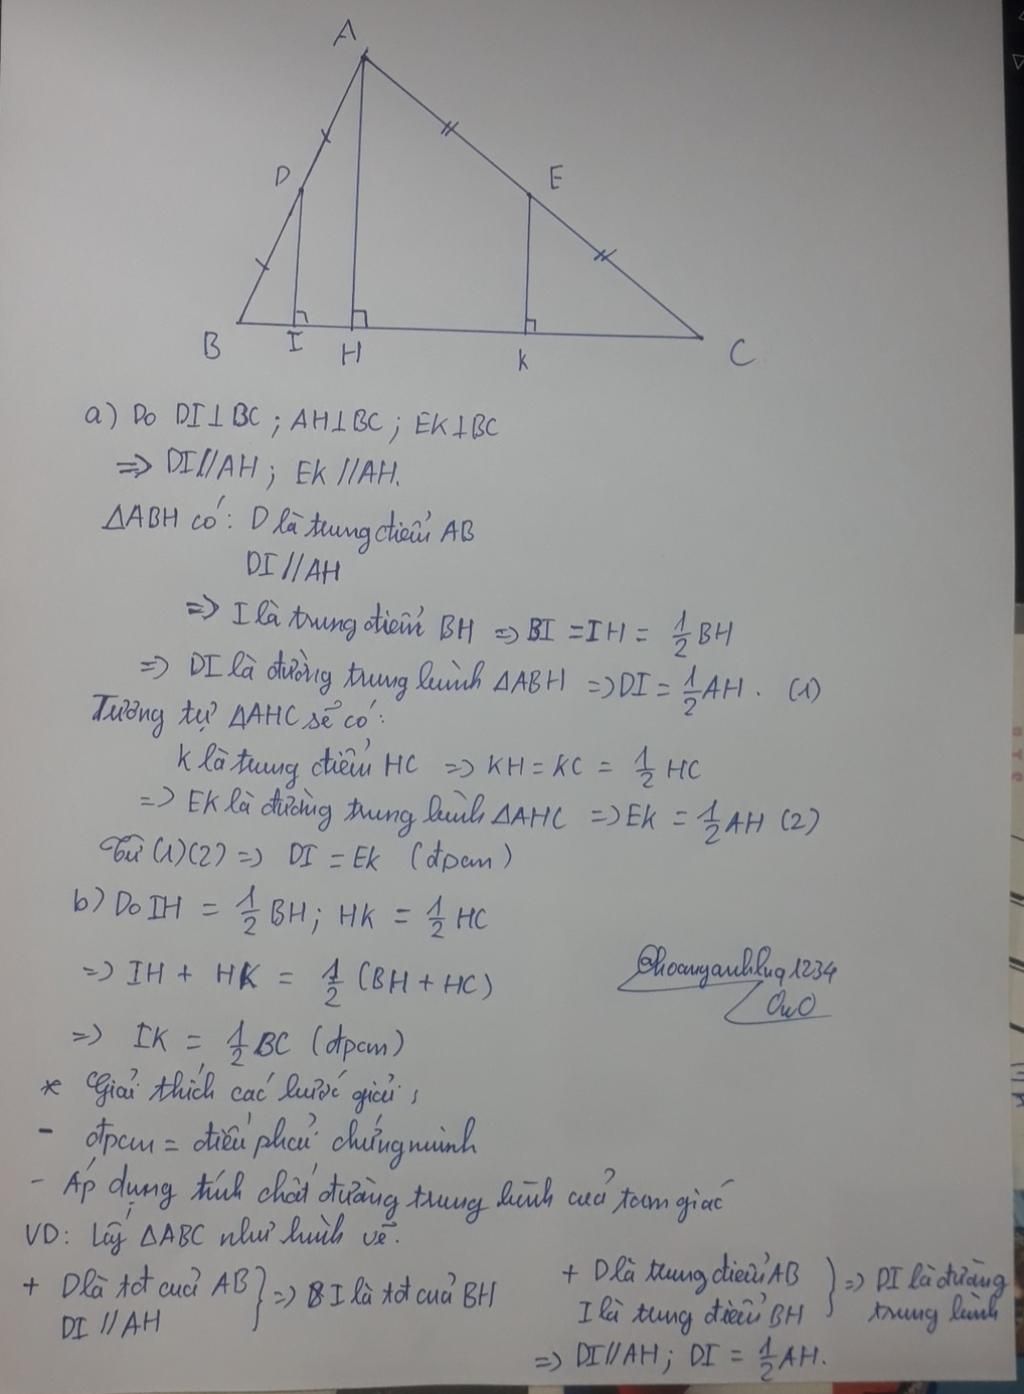 A
D
E
B
I
H
K
C
a) Do DI⊥BC ; AH⊥BC ; EK⊥BC
=> DI//AH ; EK//AH.
ΔABH có: D là trung điểm AB
DI//AH
=> I là trung điểm BH => BI = IH = 1/2 BH
=> DI là đường trung bình ΔABH => DI = 1/2 AH. (1)
Tương tự ΔAHC sẽ có:
K là trung điểm HC => KH = KC = 1/2 HC
=> EK là đường trung bình ΔAHC => EK = 1/2 AH (2)
Từ (1)(2) => DI = EK (đpcm)
b) Do IH = 1/2 BH; HK = 1/2 HC
=> IH + HK = 1/2 (BH + HC)
=> IK = 1/2 BC (đpcm)
OwO
* Giải thích các bước giải:
- đpcm = điều phải chứng minh
- Áp dụng tính chất đường trung bình của tam giác
VD: Lấy ΔABC như hình vẽ.
+ D là tđ của AB
DI//AH
=> I là tđ của BH
+ D là trung điểm AB
I là trung điểm BH
=> DI là đường
trung bình
=> DI//AH; DI = 1/2 AH.